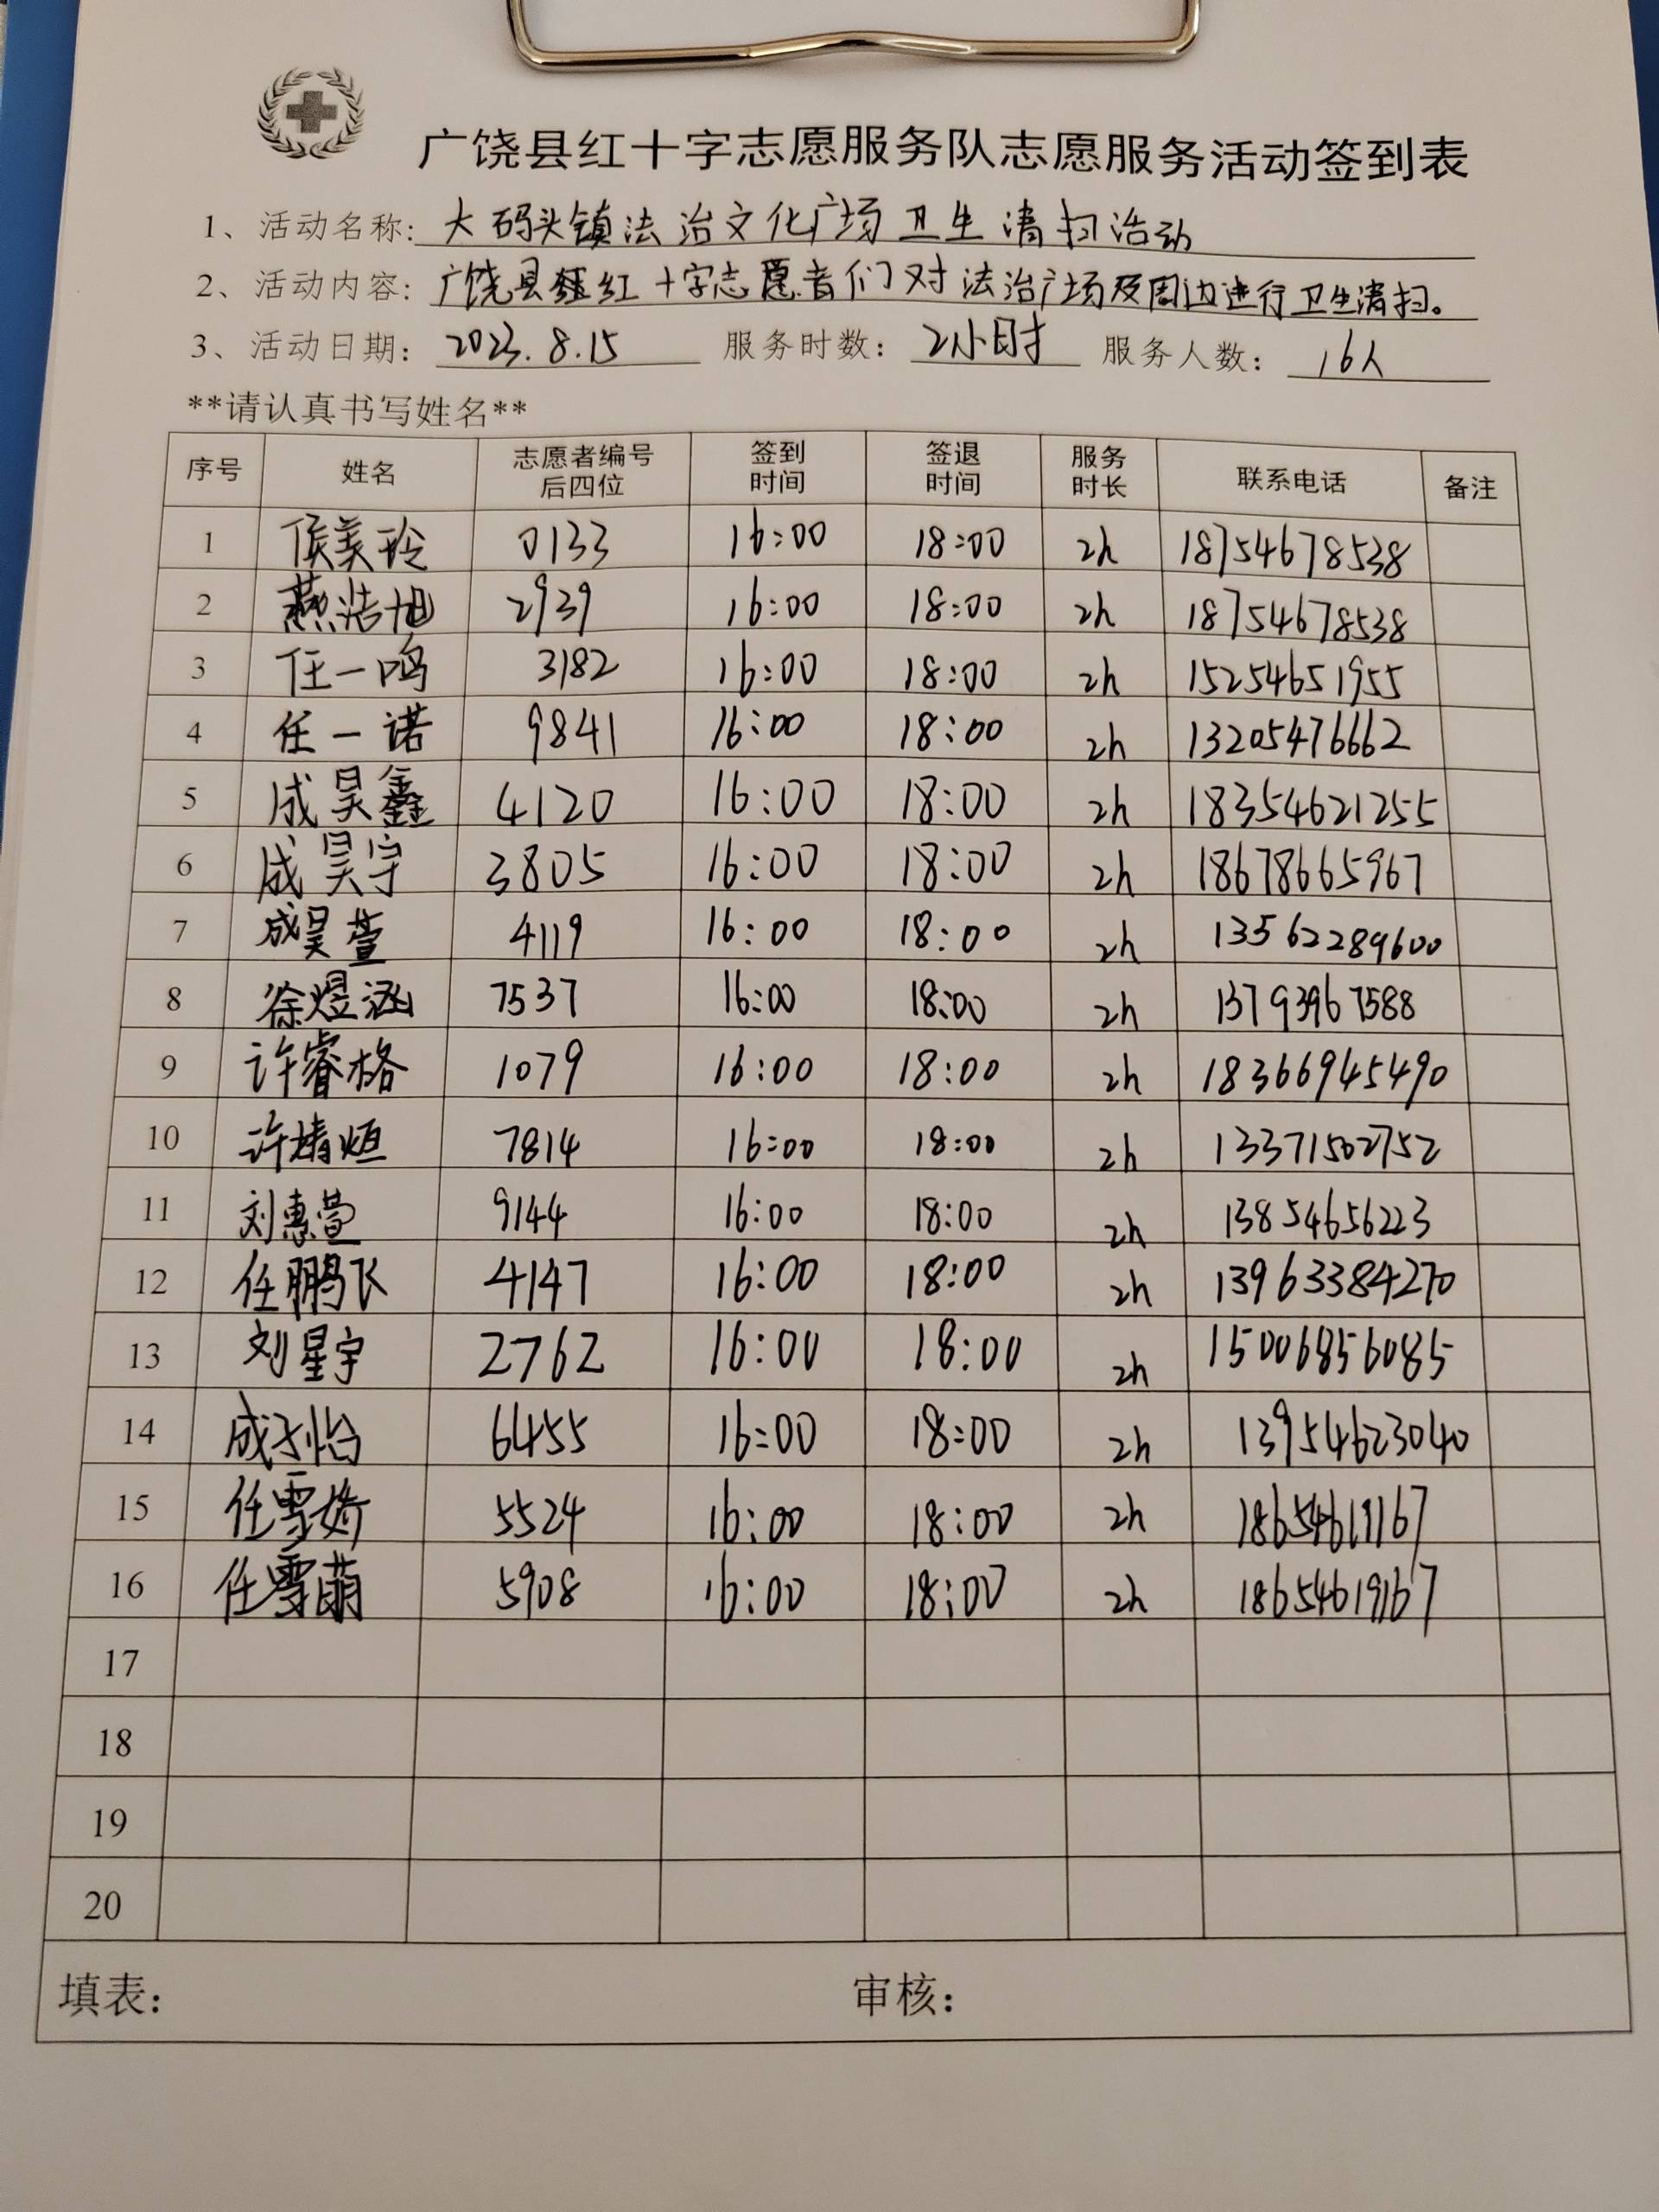 广饶县红十字志愿服务队志愿服务活动签到表
1、活动名称: 大码头镇法治文化广场卫生清扫活动
2、活动内容: 广饶县红十字志愿者们对法治广场及周边进行卫生清扫。
3、活动日期: 2023.8.15 服务时数: 2小时 服务人数: 16人
**请认真书写姓名**
序号 姓名 志愿者编号后四位 签到时间 签退时间 服务时长 联系电话 备注
1 侯美玲 0133 16:00 18:00 2h 18754678538
2 燕浩旭 2939 16:00 18:00 2h 18754678538
3 任一鸣 3182 16:00 18:00 2h 15254651955
4 任一诺 9841 16:00 18:00 2h 13205476662
5 成昊鑫 4120 16:00 18:00 2h 18354621255
6 成昊宇 3805 16:00 18:00 2h 18678665967
7 成昊萱 4119 16:00 18:00 2h 13562289600
8 徐煜涵 7537 16:00 18:00 2h 13793967588
9 许睿格 1079 16:00 18:00 2h 18366945490
10 许靖烜 7814 16:00 18:00 2h 13371502752
11 刘惠萱 9144 16:00 18:00 2h 13854656223
12 任鹏飞 4147 16:00 18:00 2h 13963384270
13 刘星宇 2762 16:00 18:00 2h 15006856085
14 成子怡 6455 16:00 18:00 2h 13954623040
15 任雪娇 5524 16:00 18:00 2h 18654619167
16 任雪萌 5908 16:00 18:00 2h 18654619167
17
18
19
20
填表: 审核: